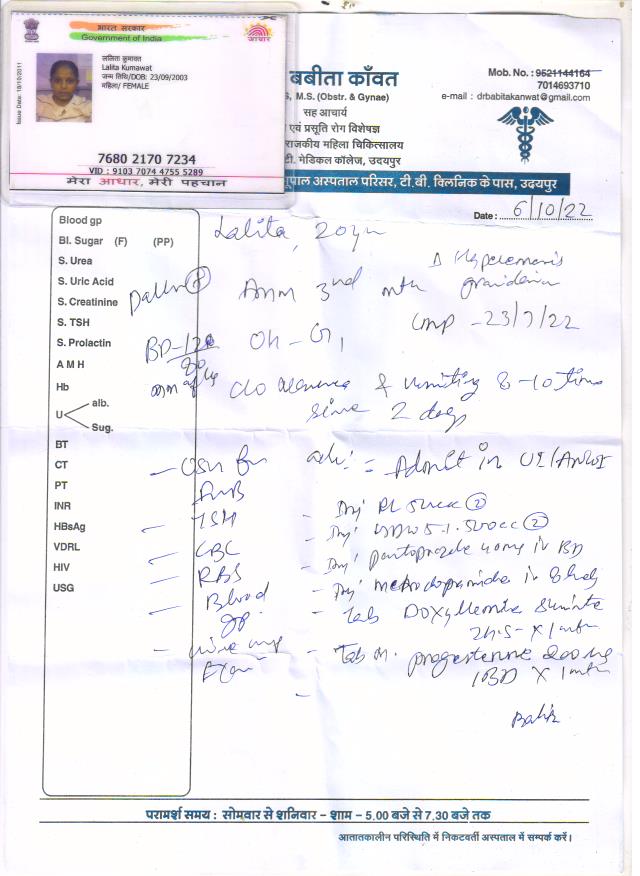 भारत सरकार
Government of India
आधार
Issue Date: 18/10/2011
ललिता कुमावत
Lalita Kumawat
जन्म तिथि/DOB: 23/09/2003
महिला/ FEMALE
7680 2170 7234
VID : 9103 7074 4755 5289
मेरा आधार, मेरी पहचान
बबीता काँवत
S, M.S. (Obstr. & Gynae)
सह आचार्य
एवं प्रसूति रोग विशेषज्ञ
राजकीय महिला चिकित्सालय
टी. मेडिकल कॉलेज, उदयपुर
Mob. No.: 9521144164
7014693710
e-mail : drbabitakanwat@gmail.com
पाल अस्पताल परिसर, टी.बी. क्लिनिक के पास, उदयपुर
Date: 6/10/22
Blood gp
Bl. Sugar (F) (PP)
S. Urea
S. Uric Acid
S. Creatinine
S. TSH
S. Prolactin
A M H
Hb
U alb.
Sug.
BT
CT
PT
INR
HBsAg
VDRL
HIV
USG
Lalita, 20yr
3rd mth
LMP - 23/7/22
Oh - G1
c/o & vomiting 8-10 times
since 2 days
adv: = Admit in
- TSH
- CBC
- RBS
- Blood gp
- Inj RL 500cc (2)
- Inj 5% 500cc (2)
- Inj pantoprazole 40mg iv BD
- Inj metoclopramide iv 8hrly
- Tab Doxylamine
x 1 mth
- Tab progesterone 200mg
1BD x 1 mth
परामर्श समय : सोमवार से शनिवार – शाम – 5.00 बजे से 7.30 बजे तक
आतातकालीन परिस्थिति में निकटवर्ती अस्पताल में सम्पर्क करें।